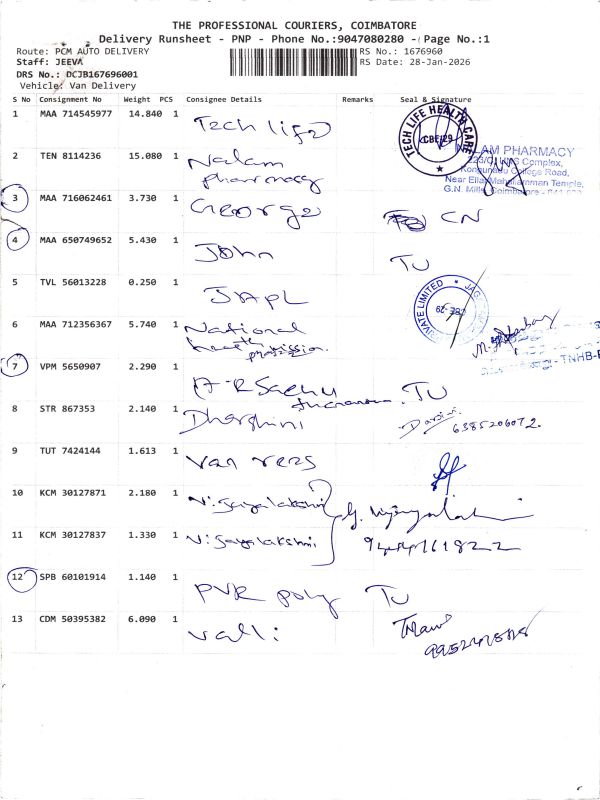 THE PROFESSIONAL COURIERS, COIMBATORE
Delivery Runsheet - PNP - Phone No.:9047080280 - Page No.:1
Route: PCM AUTO DELIVERY RS No.: 1676960
Staff: JEEVA RS Date: 28-Jan-2026
DRS No.: DCJB167696001
Vehicle: Van Delivery
S No Consignment No Weight PCS Consignee Details Remarks Seal & Signature
1 MAA 714545977 14.840 1 Tech life
TECH LIFE HEALTH CARE
CBE-29
2 TEN 8114236 15.080 1 Nalam
pharmacy
NALAM PHARMACY
Complex,
Kongunadu College Road,
Near Ellai Mahaliamman Temple,
G.N. Mills, Coimbatore - 641 029
3 MAA 716062461 3.730 1 George CN
4 MAA 650749652 5.430 1 John TU
5 TVL 56013228 0.250 1 JAPL
PRIVATE LIMITED JAG
CBE-29
6 MAA 712356367 5.740 1 National
health mission
TNHB-
7 VPM 5650907 2.290 1 TU
8 STR 867353 2.140 1 Dharshini
6385206072.
9 TUT 7424144 1.613 1 Van
10 KCM 30127871 2.180 1 Vijayalakshmi
11 KCM 30127837 1.330 1 Vijayalakshmi
12 SPB 60101914 1.140 1 PVR poly TU
13 CDM 50395382 6.090 1 Valli